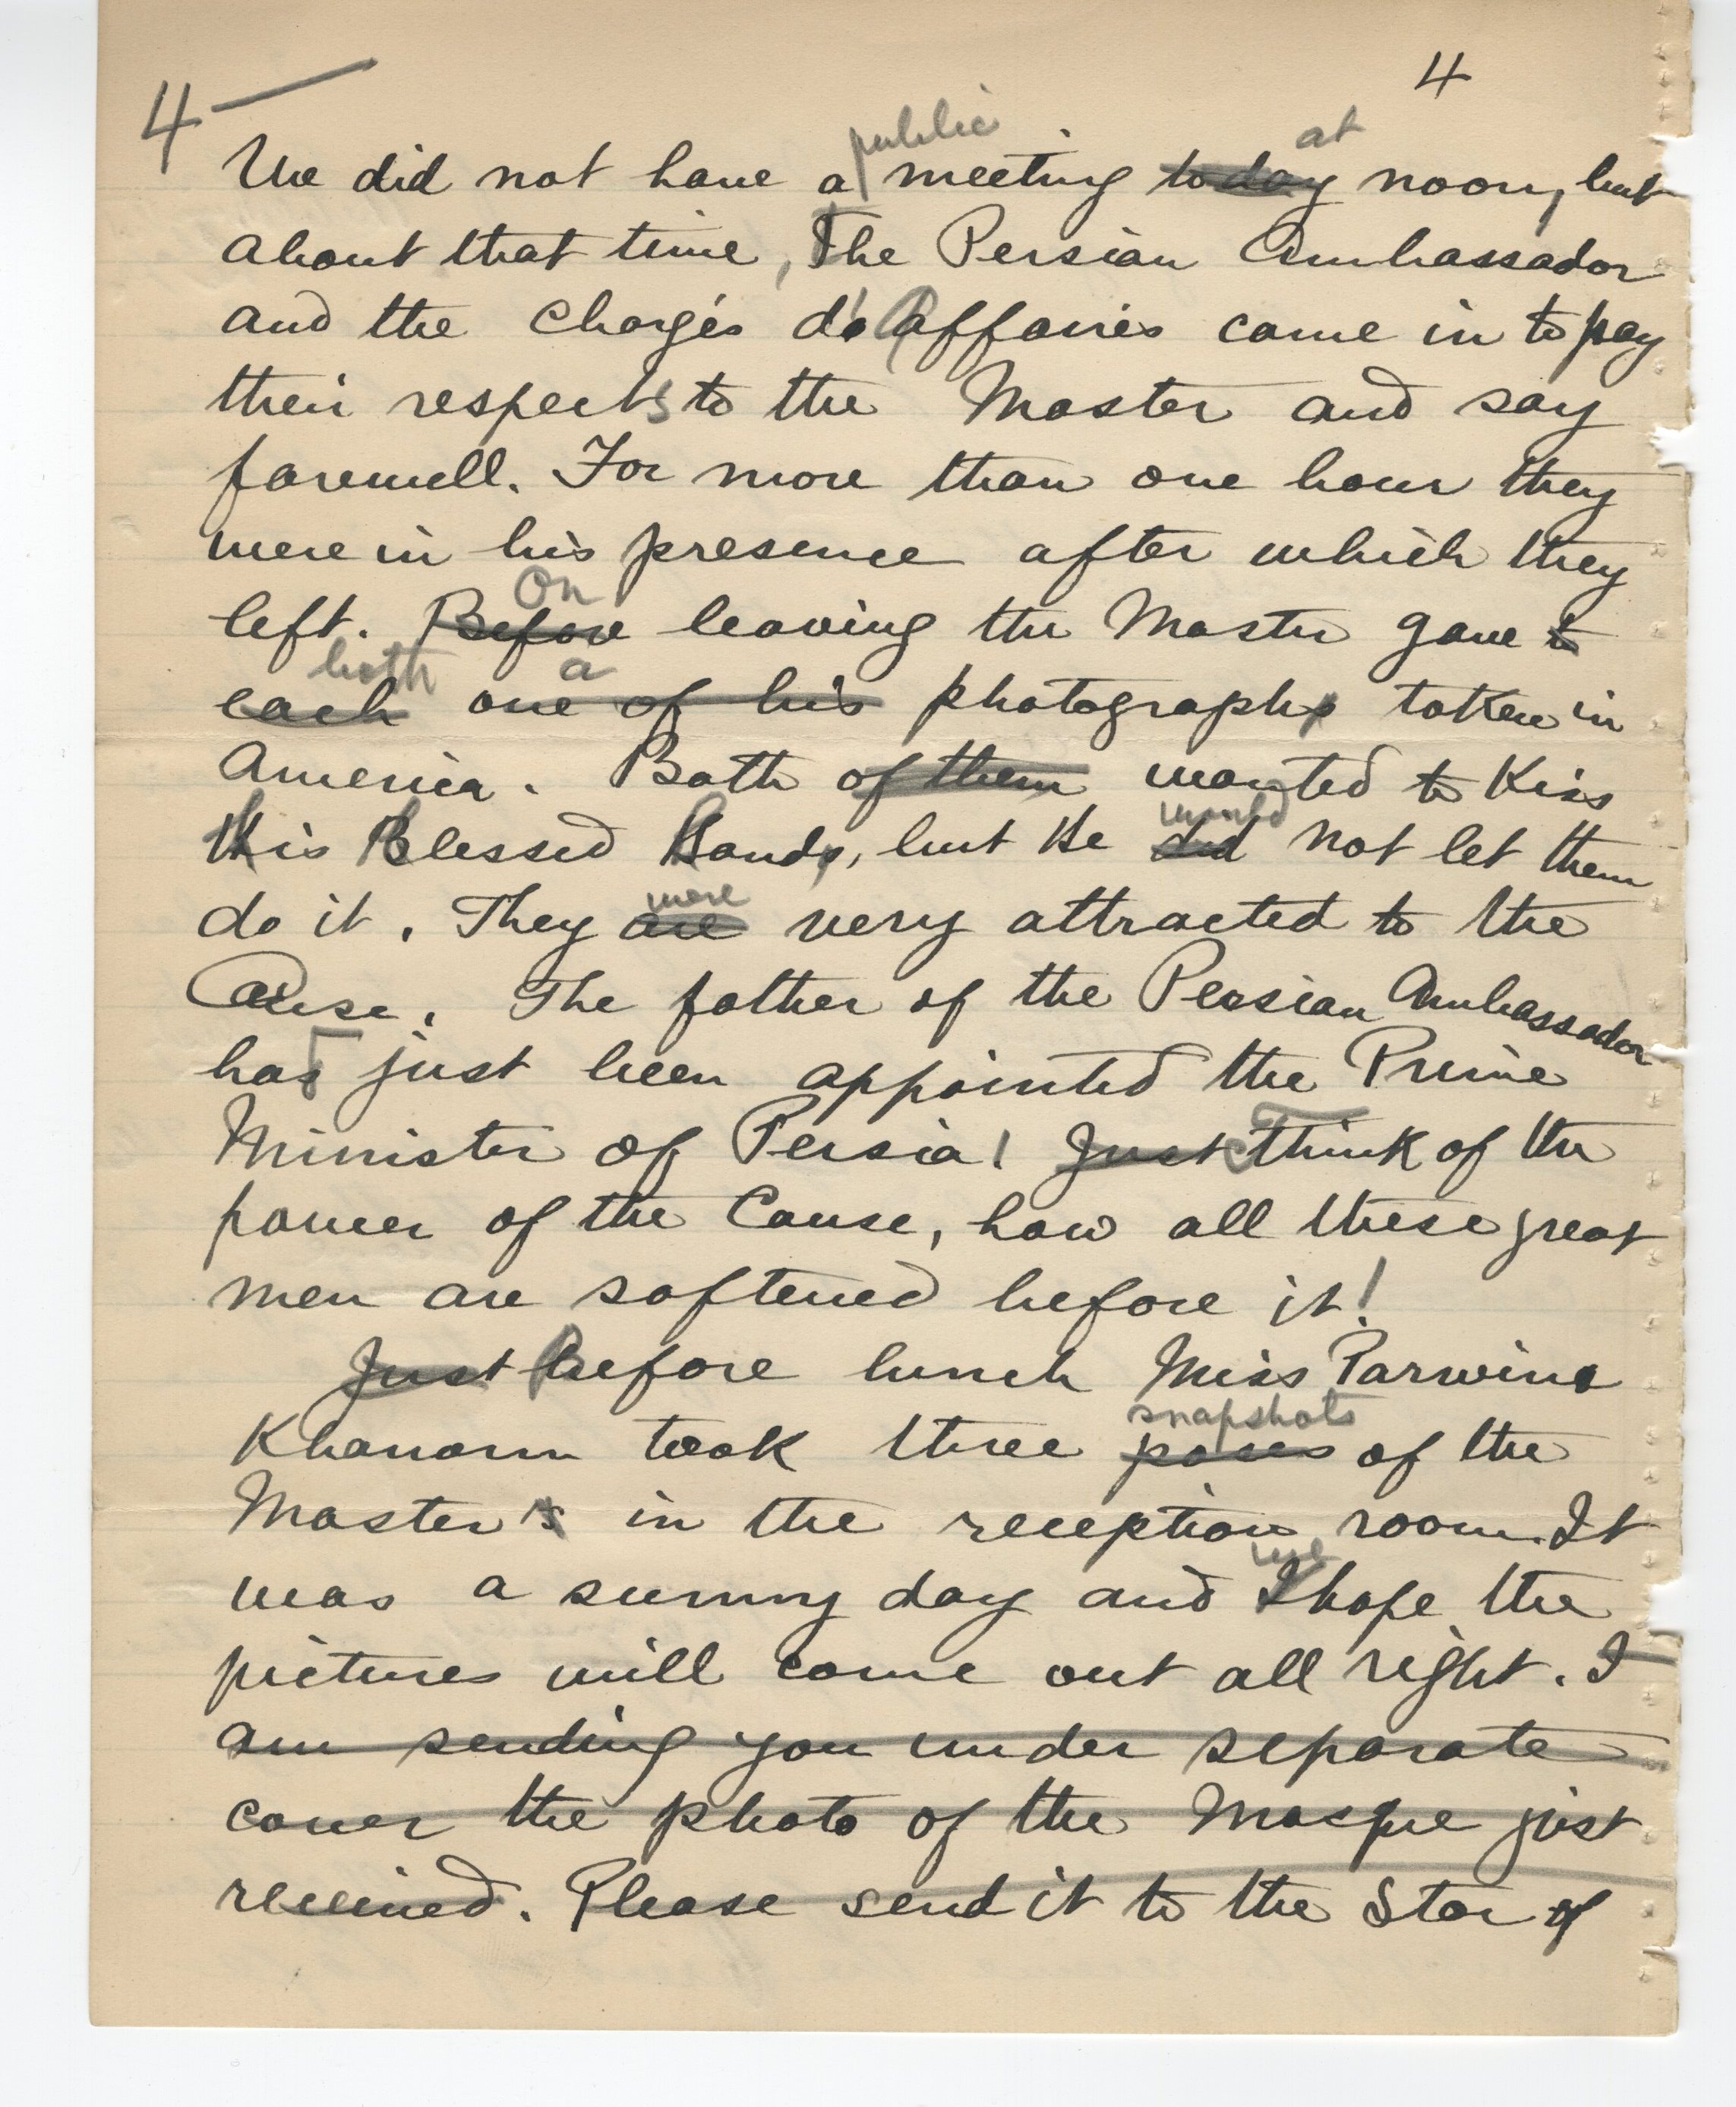 4 — 4
public at
We did not have a meeting today noon, but
about that time, the Persian Ambassador
and the Chargés d'affaires came in to pay
their respects to the Master and say
farewell. For more than one hour they
were in his presence after which they
On
left. Before leaving the Master gave to
both a
each one of his photographs taken in
America. Both of them wanted to Kiss
would
His Blessed Hands, but He did not let them
were
do it. They are very attracted to the
Cause. The father of the Persian Ambassador
has just been appointed the Prime
Minister of Persia! Just Think of the
power of the Cause, how all these great
men are softened before it!
Just Before lunch Miss Parwine
snapshots
Khanom took three poses of the
Master's in the reception room. It
we
was a sunny day and I hope the
pictures will come out all right. I
am sending you under separate
cover the photo of the Mosque just
received. Please send it to the Star of